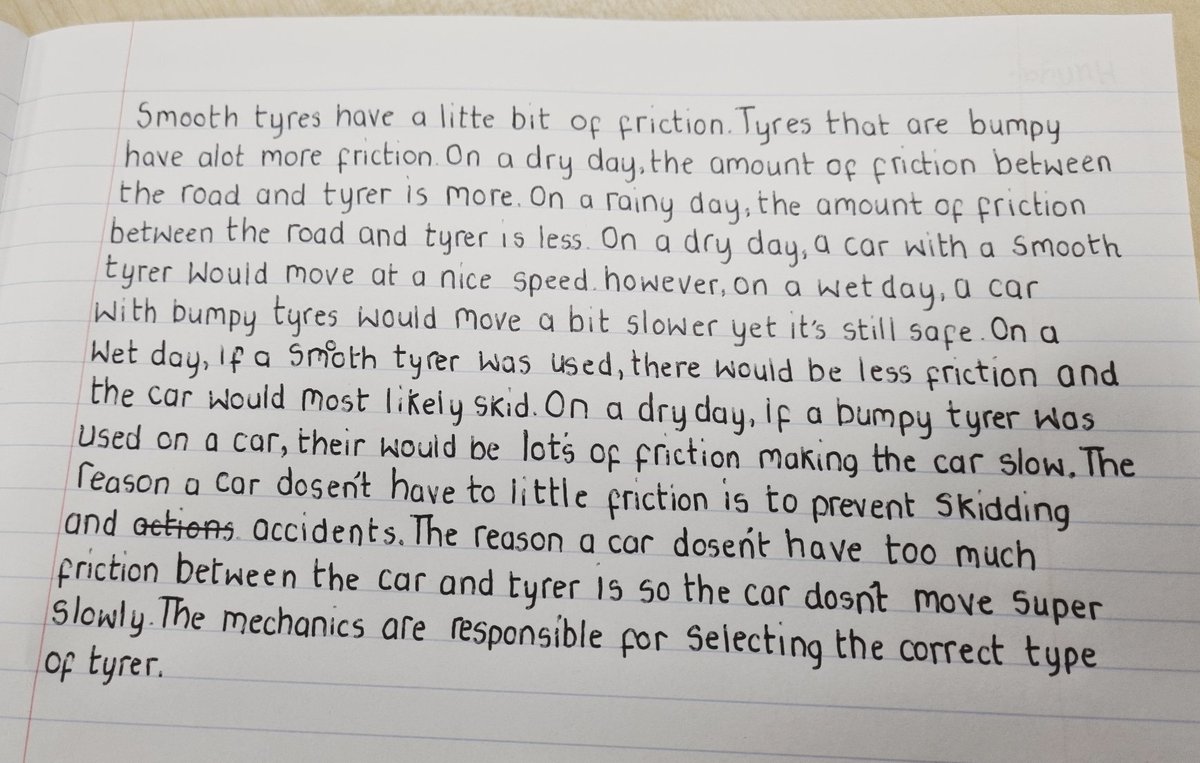 Smooth tyres have a litte bit of friction. Tyres that are bumpy
have alot more friction. On a dry day, the amount of friction between
the road and tyrer is more. On a rainy day, the amount of friction
between the road and tyrer is less. On a dry day, a car with a smooth
tyrer would move at a nice speed. however, on a wet day, a car
with bumpy tyres would move a bit slower yet it's still safe. On a
wet day, if a smooth tyrer was used, there would be less friction and
the car would most likely skid. On a dry day, if a bumpy tyrer was
used on a car, their would be lot's of friction making the car slow. The
reason a car dosen't have to little friction is to prevent skidding
and actions accidents. The reason a car dosen't have too much
friction between the car and tyrer is so the car dosn't move super
slowly. The mechanics are responsible for selecting the correct type
of tyrer.